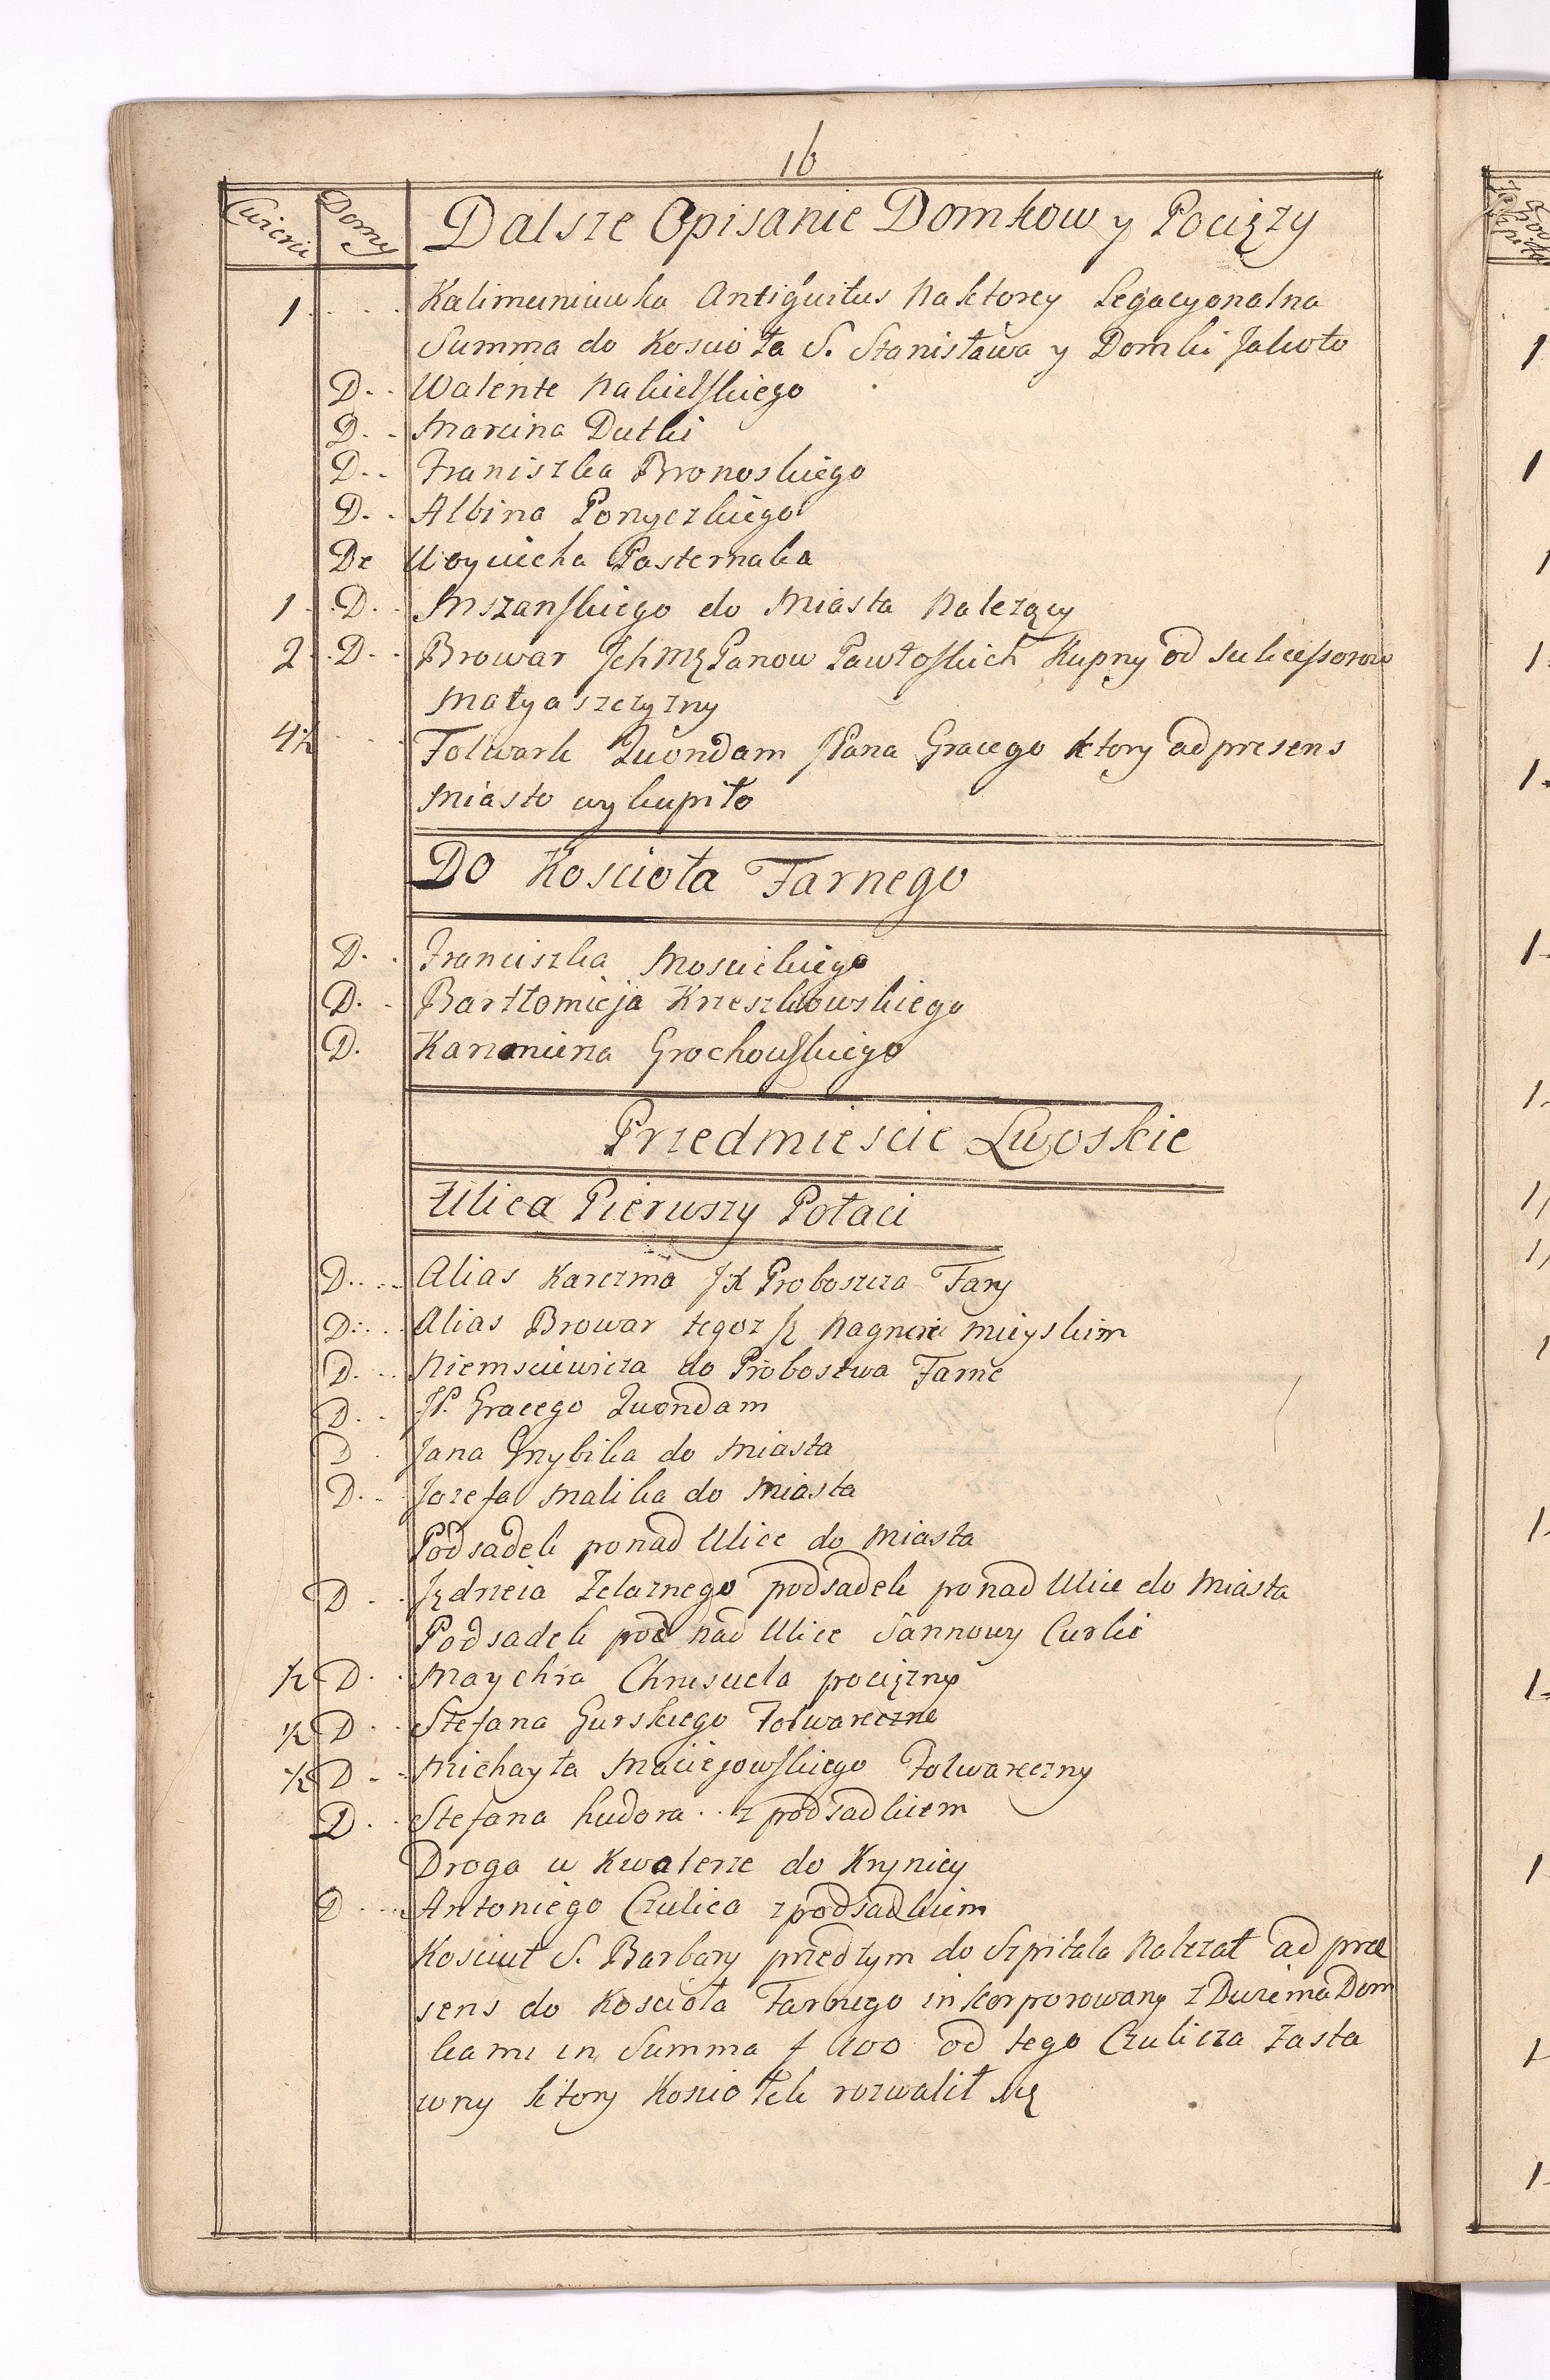 16
Cwierci Domy Dalsze Opisanie Domkow y Pocięzy
1 . . . . Kalimuniuwka Antiquitus Naktorey Legacyonalna
Summa do Koscioła S. Stanisława y Domki Jakoto
D. . Walente Nakielskiego
D. . Marcina Dutki
D. . Franiszka Bronoskiego
D. . Albina Ponyczkiego
De Woyciecha Pasternaka
1 . . D. . Mszanskiego do Miasta Nalezący
2 . . D. . Browar Jch Mę Panow Pawłoskich Kupny od sukcessorow
Matyaszczyzny
4½ . . . Folwark Quondam JPana Gracego ktory ad presens
Miasto wykupiło
Do Koscioła Farnego
D. . Franciszka Moscickiego
D. . Bartłomieja Krzeszkowskiego
D. Kanoniena Grochowskiego
Przedmiescie Lwoskie
Ulica Pierwszy Połaci
D. . . . Alias Karczma JX Proboszcza Fary
D. . . . Alias Browar tegoz Nagnerie mieyskim
D. . . Niemsciewicza do Probostwa Farne
D. . JP. Gracego Quondam
D . Jana Grzybika do Miasta
D. . Jozefa Malika do Miasta
Podsadek ponad Ulice do Miasta
D . . Jędrzeia Zelaznego podsadek ponad Ulice do Miasta
Podsadek ponad Ulice Sannowy Curki
½ D. . Maychra pocięzny
½ D . . Stefana Gurskiego Folwareczne
½ D . . Michayła Maciejowskiego Folwareczny
D. . Stefana hudora . . z podsadkiem
Droga w Kwaterze do Krynicy
D . . . Antoniego Czulica z podsadkiem
Kosciuł S. Barbary przedtym do Szpitala Nalezał ad præ
sens do Koscioła Farnego inkorporowany z Dwiema Dom
kami in Summa f 400 od tego Czulicza Zasta
wny ktory Kosciołek rozwalił się